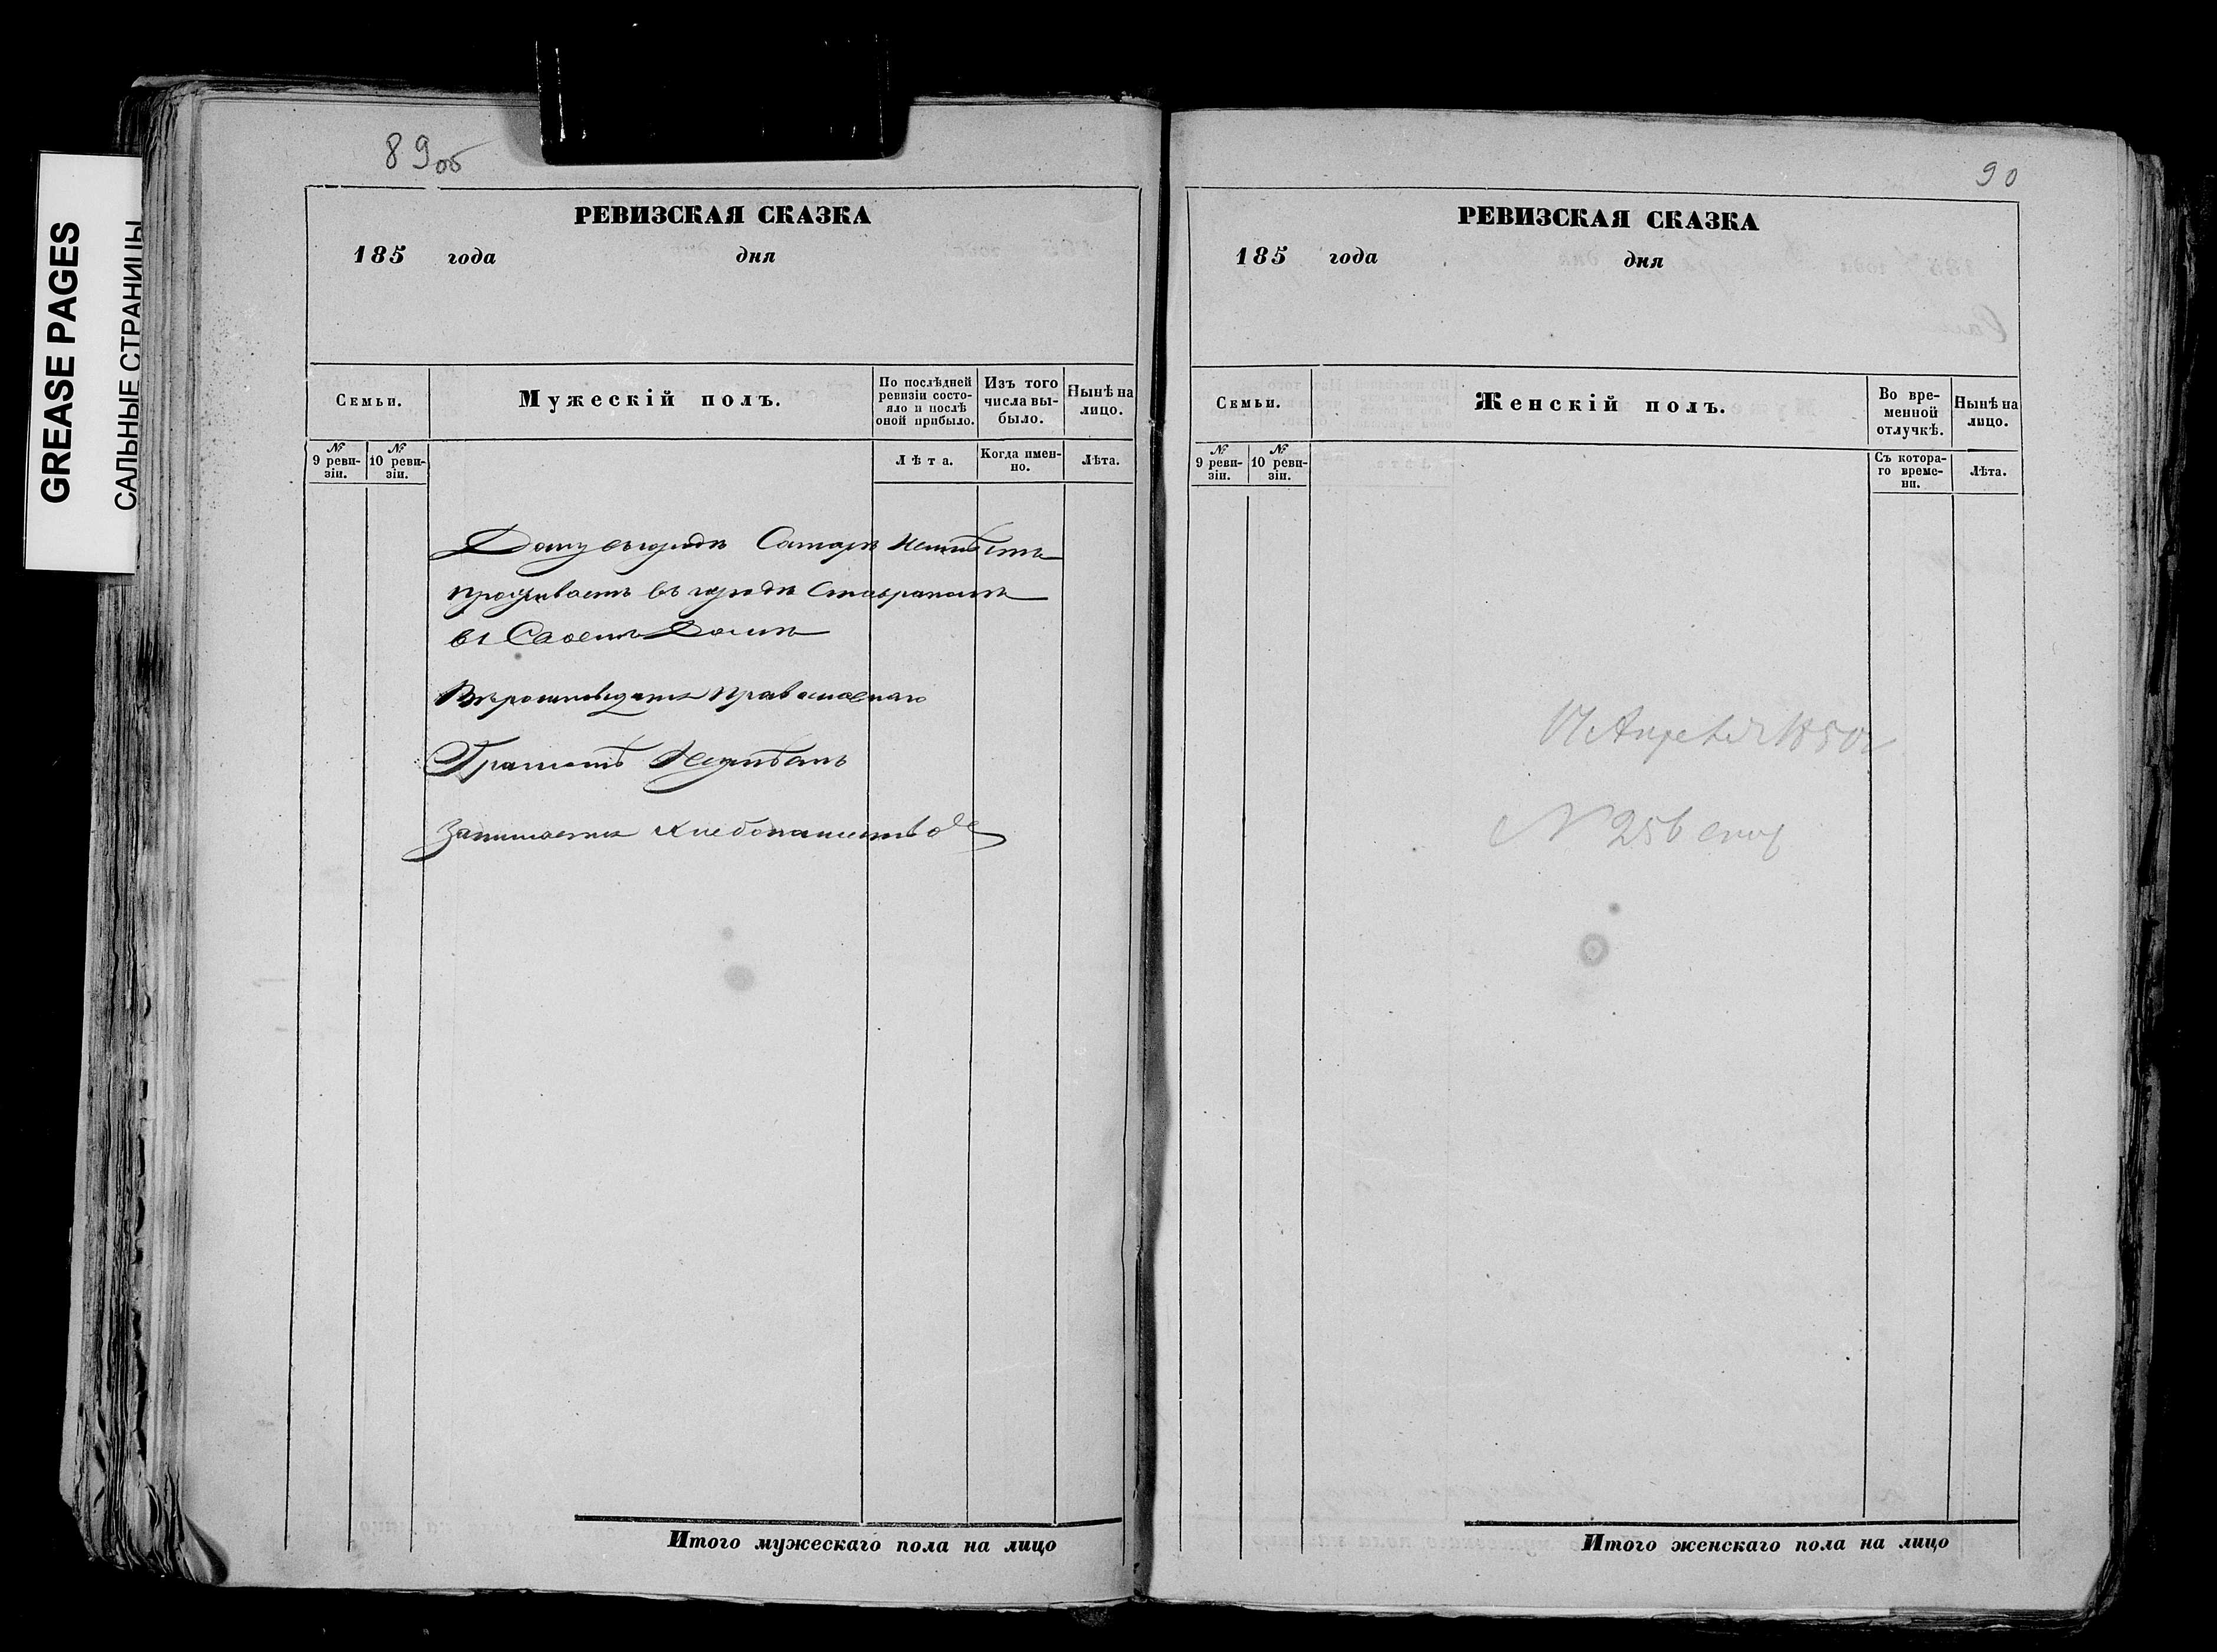 GREASE PAGES
САЛЬНЫЕ СТРАНИЦЫ
89об
РЕВИЗСКАЯ СКАЗКА
185 года дня
Семьи.
Мужескій полъ.
По послѣдней ревизіи состояло и послѣ оной прибыло.
Изъ того числа выбыло.
Нынѣ на лицо.
№ 9 ревизіи.
№ 10 ревизіи.
Лѣта.
Когда именно.
Лѣта.
Дому въ городѣ Самарѣ неимѣетъ
проживаетъ въ городѣ Ставрополѣ
въ Своемъ Домѣ
Вѣроисповѣданія Православнаго
Грамотѣ
Занимается хлебопашествомъ
Итого мужескаго пола на лицо
90
РЕВИЗСКАЯ СКАЗКА
185 года дня
Семьи.
Женскій полъ.
Во временной отлучкѣ.
Нынѣ на лицо.
№ 9 ревизіи.
№ 10 ревизіи.
Съ котораго времени.
Лѣта.
Апреля 1850
№ 256
Итого женскаго пола на лицо